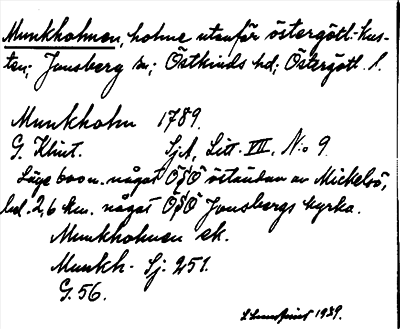 Munkholmen, holme utanför östergötl. kus-
ten; Jonsberg sn; Östkinds hd; Östergötl. l.
Munkholm 1789.
G. Klint. SjA, Litt. VII, N:o 9.
Läge 600 m. något OSO östaudan av Mickelsö,
2,6 km. något OSO Jonsbergs kyrka.
Munkholmen ek.
Munkh. Sj: 251.
G. 56.
1939.